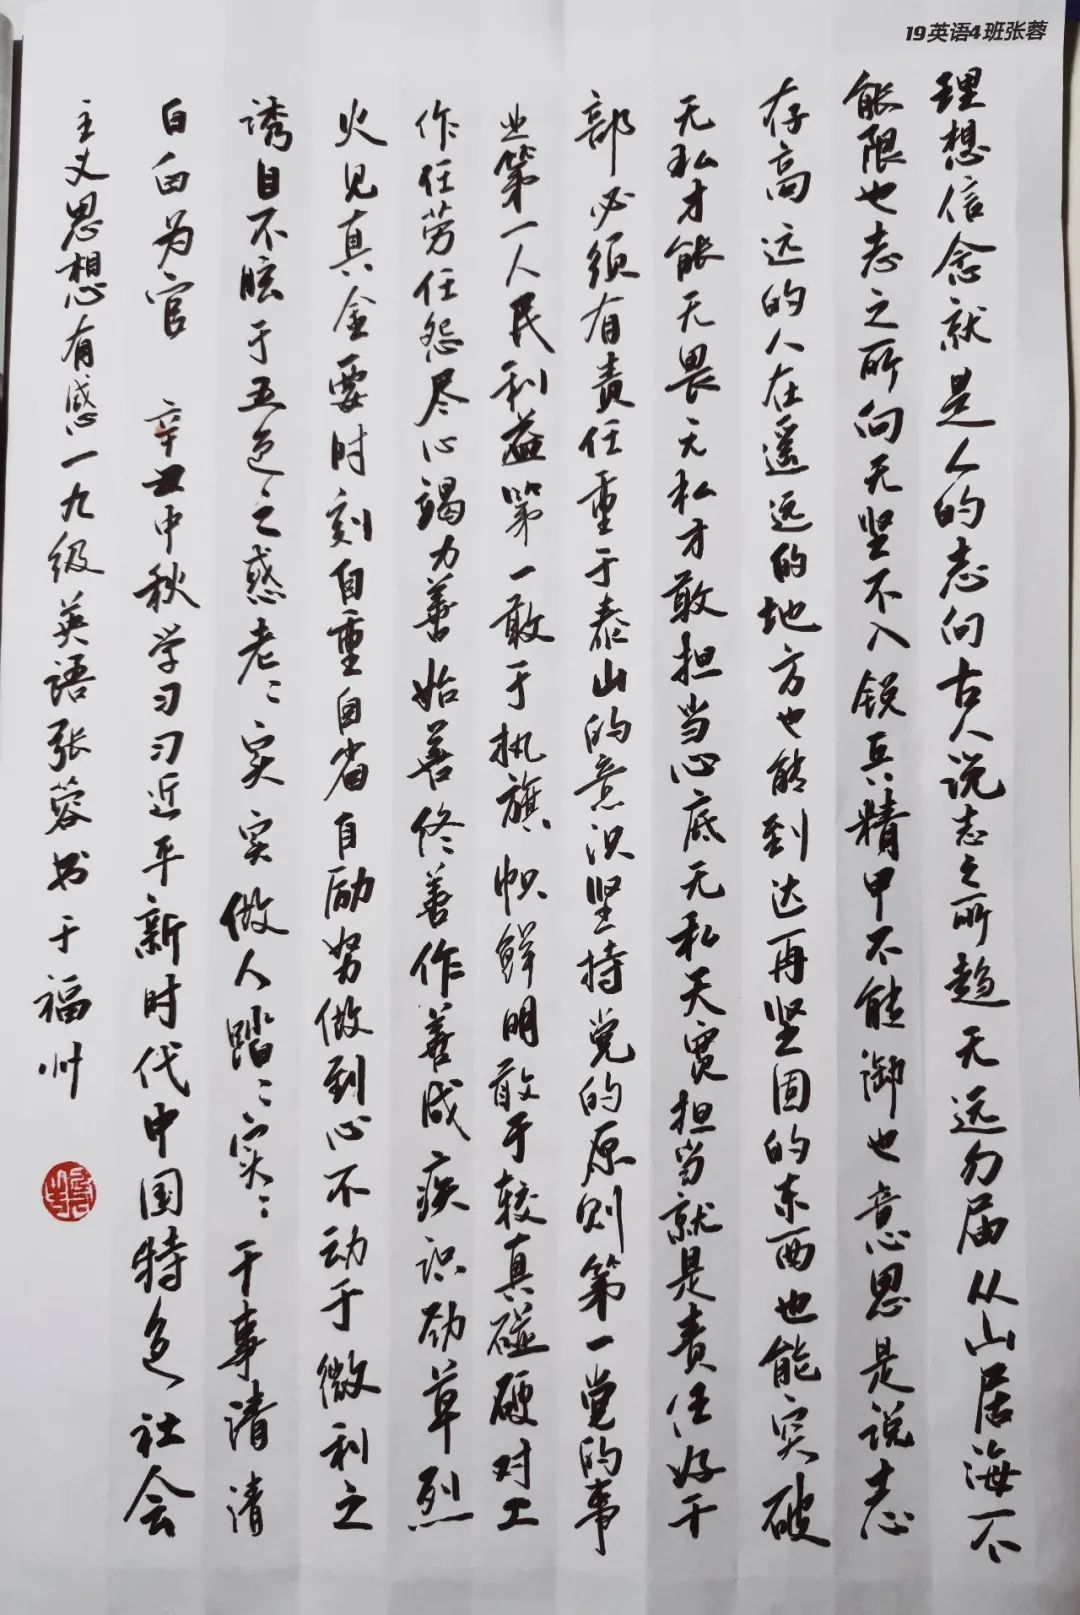 19英语4班张蓉
理想信念就是人的志向古人说志之所趋无远勿届从山居海不
能限也志之所向无坚不入锐兵精甲不能御也意思是说志
存高远的人在遥远的地方也能到达再坚固的东西也能突破
无私才能无畏无私才敢担当心底无私天宽担当就是责任好干
部必须有责任重于泰山的意识坚持党的原则第一党的事
业第一人民利益第一敢于执旗帜鲜明敢于较真碰硬对工
作任劳任怨尽心竭力善始善终善作善成疾识劲草烈
火见真金要时刻自重自省自励努做到心不动于微利之
诱目不眩于五色之惑老〻实实做人踏〻实〻干事清清
白白为官 辛丑中秋学习习近平新时代中国特色社会
主义思想有感一九级英語张蓉书于福州